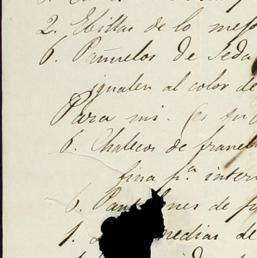 2. Evillas de lo mejo
6. Pañuelos de Seda
igualen al color de
Para mi. (es
6. Chalecos de franel
fina pª. inter
6. Pan nes de
1. medias de